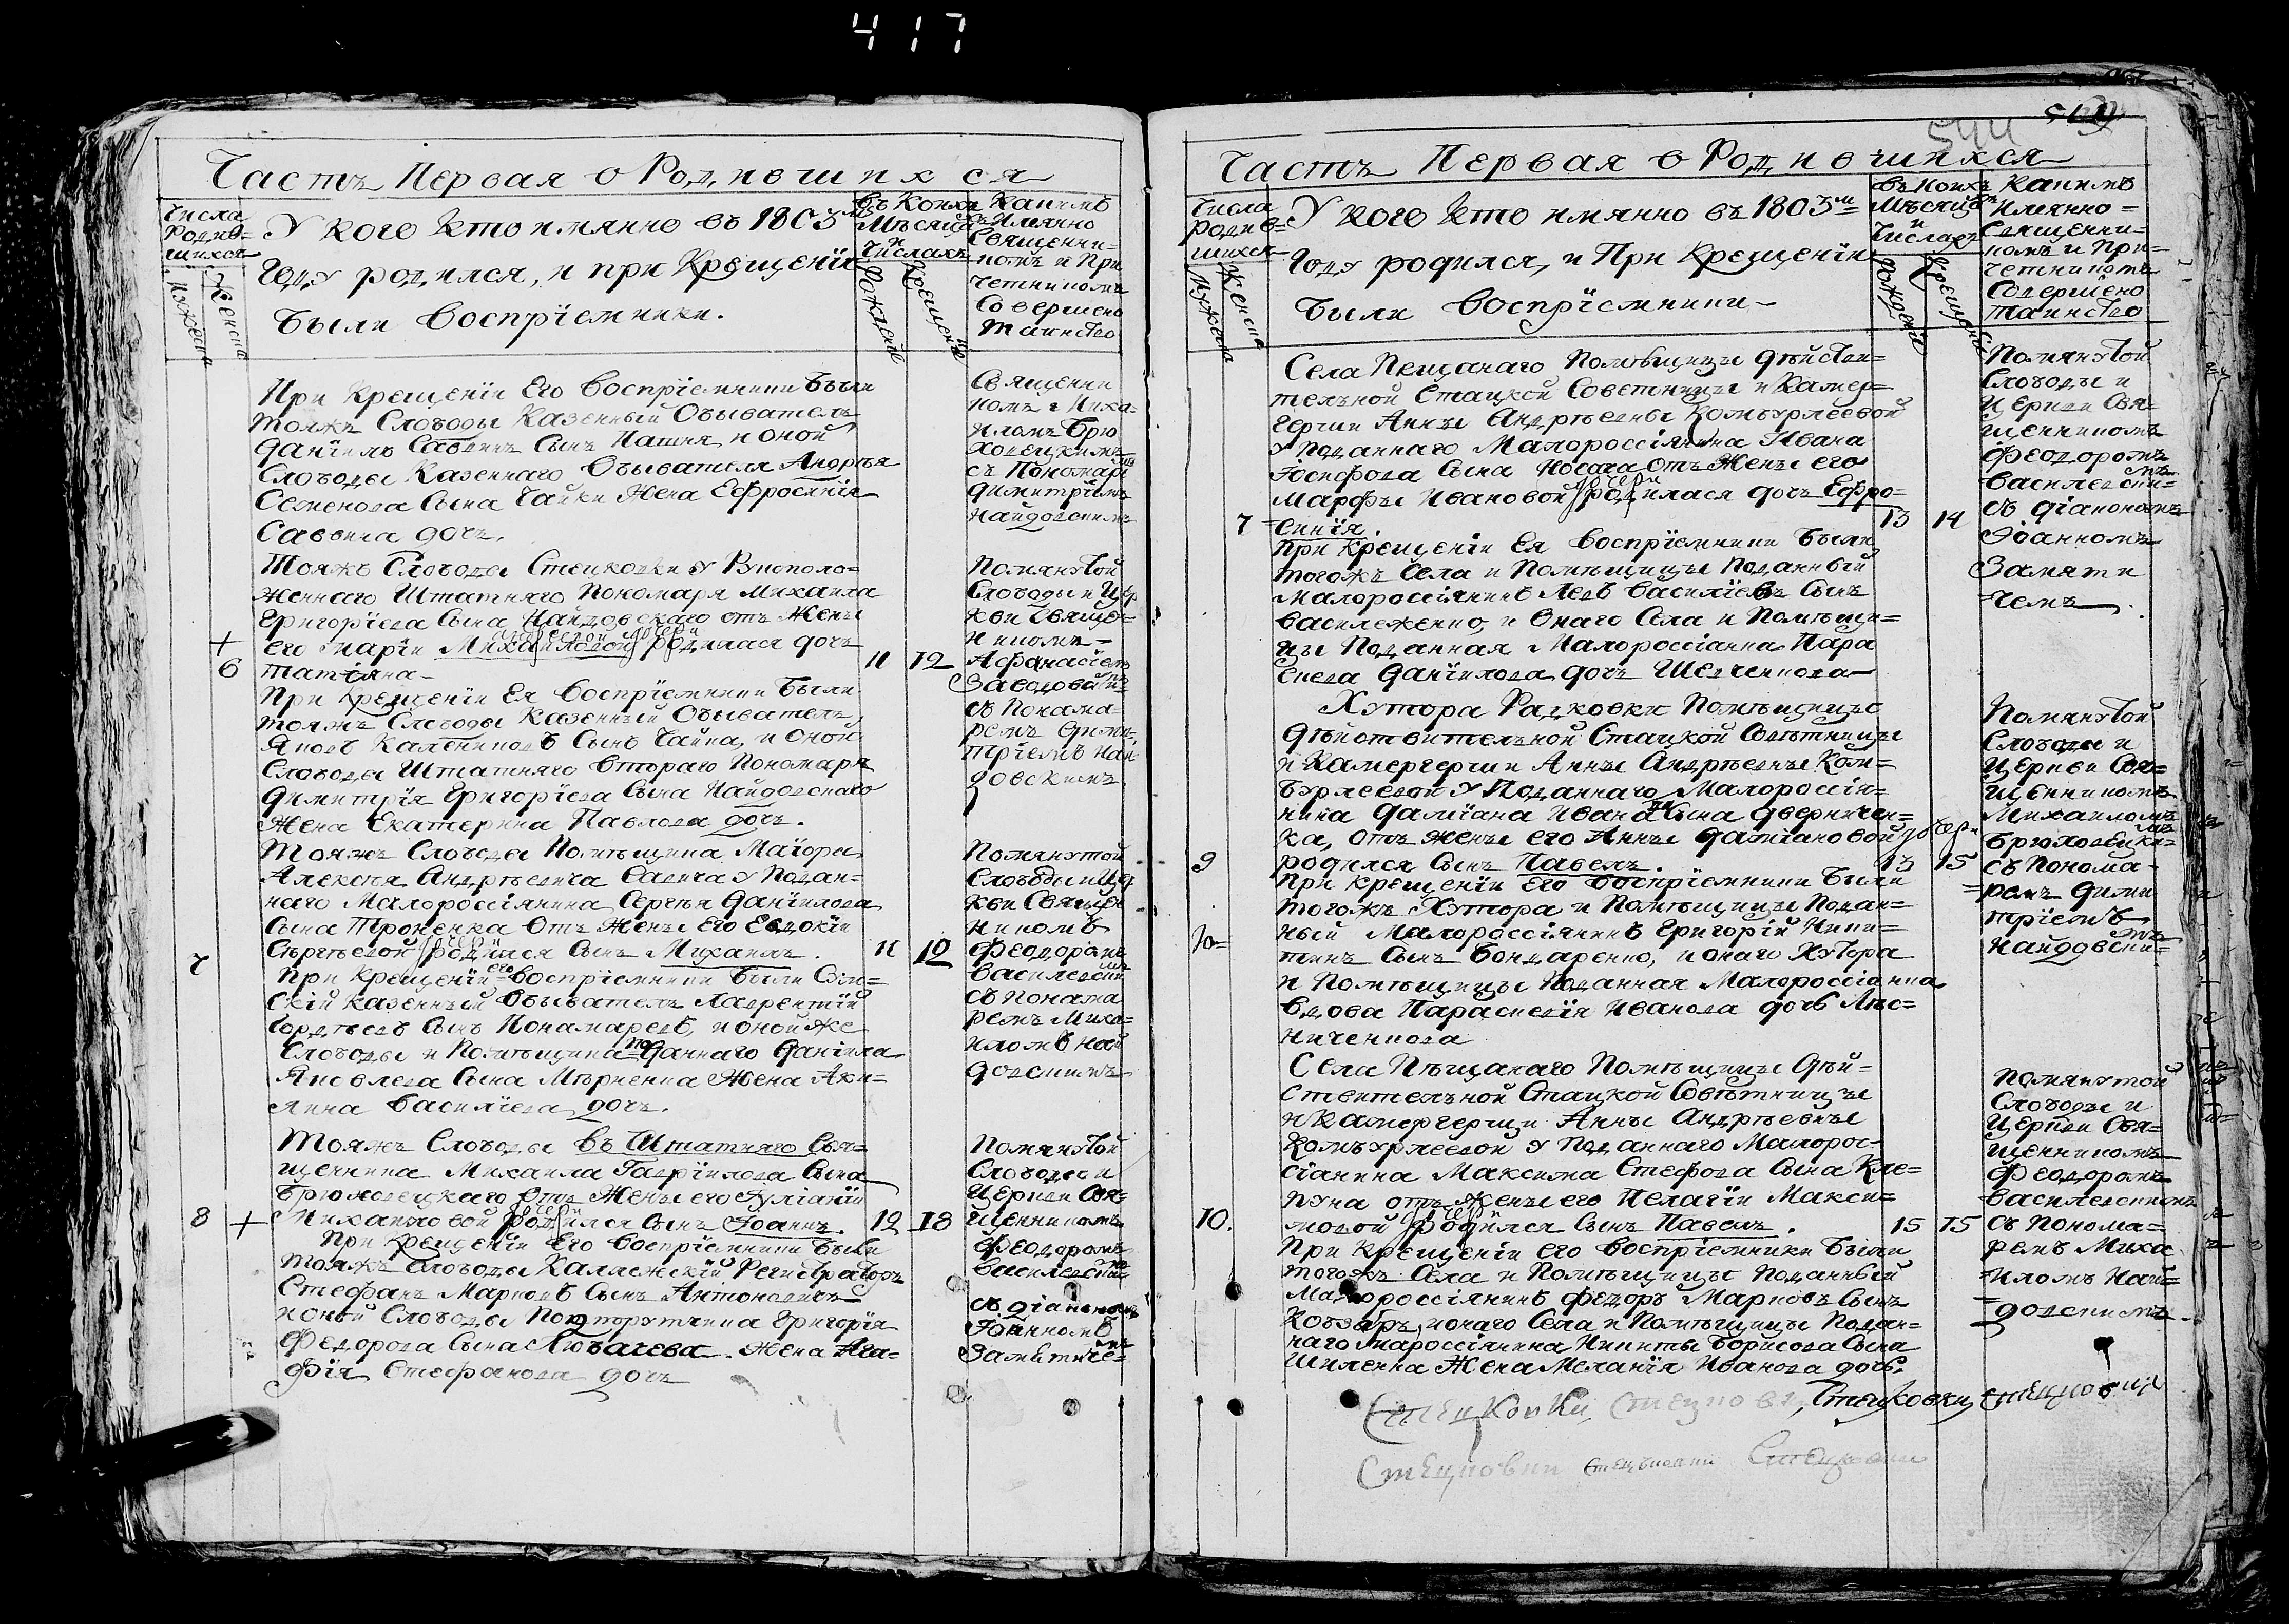 417
Часть Первая о Родившихся
Числа Родив=
шихся
Мужеска
Женска
У кого кто имянно въ 1803м
Году родился, и при Крещеніи
были воспріемники.
въ Коихъ
Мѣсяцахъ
и
Числахъ
Рожденіе
Крещеніе
Какимъ
Имянно
Священни=
комъ и При
четникомъ
Совершено
таинство
При Крещеніи Его воспріемники были
тояжъ Слободы Казенный Обыватель
Даніилъ Саввинъ Сынъ и оной
Слободы Казеннаго Обывателя Андрея
Семенова Сына Чайки Жена Ефросинія
Саввина дочь.
Священни
комъ Миха=
иломъ Брю
ховецкимъ
съ Пономаремъ
Димитріемъ
Найдовскимъ
Тояжъ Слободы Стецковки у Рукополо=
женнаго Штатняго Пономаря Михаила
Григоріева Сына Найдовскаго отъ Жены
его Маріи Михайловой родилася дочь
6 Татіяна 11 12
При Крещеніи Ея воспріемники были
тояжъ Слободы Казенный Обыватель
Яковъ Калениковъ Сынъ Чайка, и оной
Слободы Штатняго втораго Пономаря
Димитрія Григоріева Сына Найдовскаго
Жена Екатерина Павлова дочь.
Помянутой
Слободы и Цер
кви Свяще=
нникомъ
Афанасіем
съ Понама
ремъ Дими=
тріемъ Най
довскимъ
Тояжъ Слободы Помѣщика Маіора
Алексѣя Андрѣевича Савича у Подан=
наго Малороссіянина Сергѣя Данилова
Сына Троненка Отъ Жены Его Евдокіи
7 Сергѣевой родился Сынъ Михаилъ. 11 12
При Крещеніи его воспріемники были
скій казенный Обыватель Лаврентій
Гордѣевъ Сынъ Понамаревъ, и оной же
Слободы и Помѣщика поданнаго Даніила
Яковлева Сына Жена Аки=
лина Василіева дочь.
Помянутой
Слободы и Цер
кви Священ
никомъ
Феодоромъ
Василевскимъ
съ Понама
ремъ Миха=
иломъ Най
довскимъ
Тояжъ Слободы въ Штатняго Свя=
щенника Михаила Гавріилова Сына
Брюховецкаго Отъ Жены его Іуліаніи
8 Михайловой родился Сынъ Іоаннъ. 12 13
При Крещеніи Его воспріемники были
тояжъ Слободы Регистраторъ
Стефанъ Марковъ Сынъ Антоновичъ
и оной Слободы Григорія
Федорова Сына Жена Ага=
фія Стефанова дочь
Помянутой
Слободы и
Церкви Свя=
щенникомъ
Феодоромъ
Василевскимъ
съ Діакономъ
Іоанномъ
Часть Первая о Родившихся
Числа
Родив=
шихся
Мужеска
Женска
У кого кто имянно въ 1803м
Году родился, и При Крещеніи
были воспріемники
въ Коихъ
Мѣсяцахъ
и
Числахъ
Рожденіе
Крещеніе
Какимъ
Имянно=
Священни=
комъ и При=
четникомъ
Совершено
таинство
Села Пещанаго Помѣщицы Дѣйстви=
тельной Стацкой Советницы и Камер=
герши Анны Андрѣевны Комбурлеевой
у Поданнаго Малороссіянина Ивана
Іосифова Сына Носача Отъ Жены его
Марфы Ивановой родилася дочь Ефро=
7 синія. 13 14
При Крещеніи Ея воспріемники были
тогожъ Села и Помѣщицы Поданный
Малороссіянинъ Левъ Василіевъ Сынъ
Василеженко, и Онаго Села и Помѣщи=
цы Поданная Малороссіянка Пара
скева Даніилова дочь Шевченкова
Помянутой
Слободы и
Церкви Свя=
щенникомъ
Феодоромъ
Василевски=
мъ
съ Діакономъ
Іоанномъ
Хутора Радковки Помѣщицы
Дѣйствительной Стацкой Совѣтницы
и Камергерши Анны Андрѣевны Ком=
бурлеевой у Поданнаго Малороссія=
нина Даміана Иванова Сына Дверничен=
ка, отъ жены его Анны Даміановой
9 родился Сынъ Павелъ. 13 15
При Крещеніи Его воспріемники были
тогожъ Хутора и Помѣщицы Подан=
ный Малороссіянинъ Григорій Ники=
тинъ Сынъ Бондаренко, и онаго Хутора
и Помѣщицы Поданная Малороссіянка
вдова Параскевія Иванова дочь Лѣс=
ниченкова
Помянутой
Слободы и
Церкви Свя=
щенникомъ
Михаиломъ
Брюховецки=
мъ
съ Понома=
ремъ Дими
тріемъ
Найдовски=
мъ
Села Пѣщанаго Помѣщицы Дѣй=
ствительной Стацкой Совѣтницы
и Камергерши Анны Андрѣевны
Комбурлеевой у Поданнаго Малорос=
сіанина Максима Стефова Сына Кле=
пуна отъ Жены его Пелагіи Макси=
10. мовой родился Сынъ Павелъ. 15 15
При Крещеніи его воспріемники были
тогожъ Села и Помѣщицы Поданный
Малороссіянинъ Федоръ Марковъ Сынъ
Кобзаръ, и онаго Села и Помѣщицы Подан=
наго Мароссіянина Никиты Борисова Сына
Шиленка Жена Меланія Иванова дочь.
Помянутой
Слободы и
Церкви Свя=
щенникомъ
Феодоромъ
Василевскимъ
съ Понома=
ремъ Миха
иломъ Най=
довскимъ
Стецковки Стецковки, Стецковки Стецковки
Стецковки Стецковки Стецковки